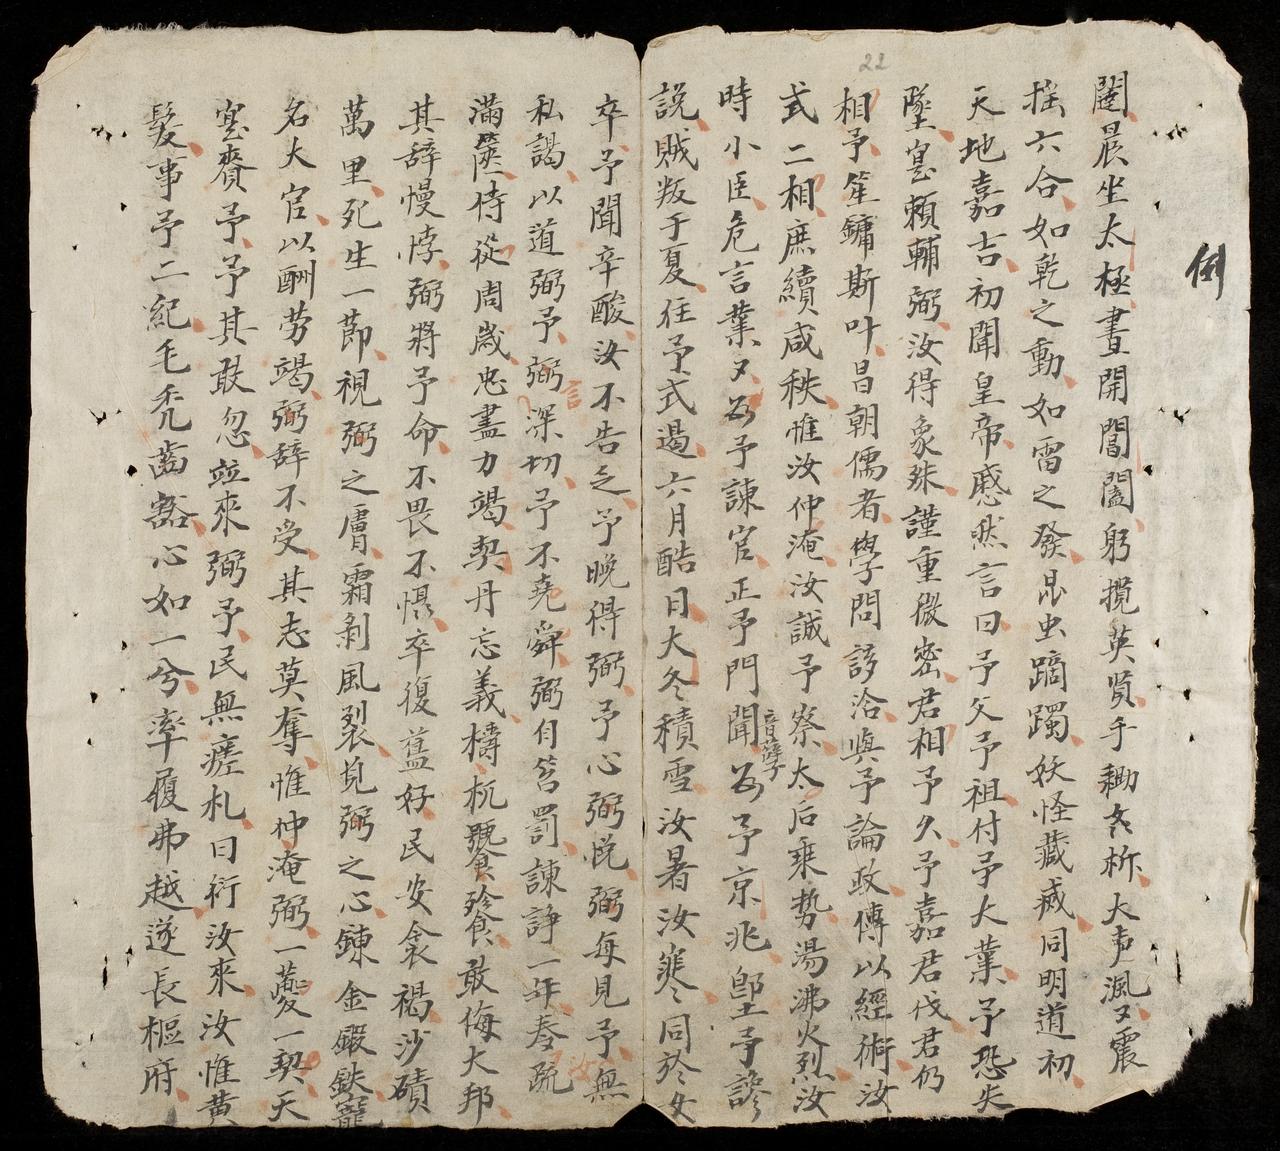 22
例
闥晨坐太極晝開閶闔躬攬英賢手鋤姦枿大声渢〻震
搖六合如乾之動如雷之發昆虫蹢躅妖怪藏滅同明道初
天地嘉吉初聞皇帝慼然言曰予父予祖付予大業予恐失
墜寔頼輔弼汝得象殊謹重微密君相予久予嘉君伐君仍
相予笙鏞斯叶昌朝儒者學問該洽與予論政傅以經術汝
式二相庶績咸秩惟汝仲淹汝誠予察太后乗勢湯沸火烈汝
時小臣危言業〻為予諫官正予門闑音孽為予京兆堲予讒
説賊叛于夏徃予式遏六月酷日大冬積雪汝暑汝寒同於士
卒予聞辛酸汝不告乏予晚得弼予心弼悦弼每見予無
私謁以道弼予弼言深切予不堯舜弼自笞罰諫諍一年奏疏
滿篋侍從周歳忠盡力竭契丹忘義檮杌饕餮敢侮大邦
其辞慢悖弼將予命不畏不慑卒復舊好民安衾褐沙磧
萬里死生一節視弼之膚霜剥風裂覌弼之心錬金鍜鉄寵
名大官以酬劳竭弼辞不受其志莫奪惟仲淹弼一夔一契天
寔賚予予其敢忽並來弼予民無瘥札曰衍汝來汝惟黄
髪事予二紀毛秃齒豁心如一兮率履弗越遂長樞府